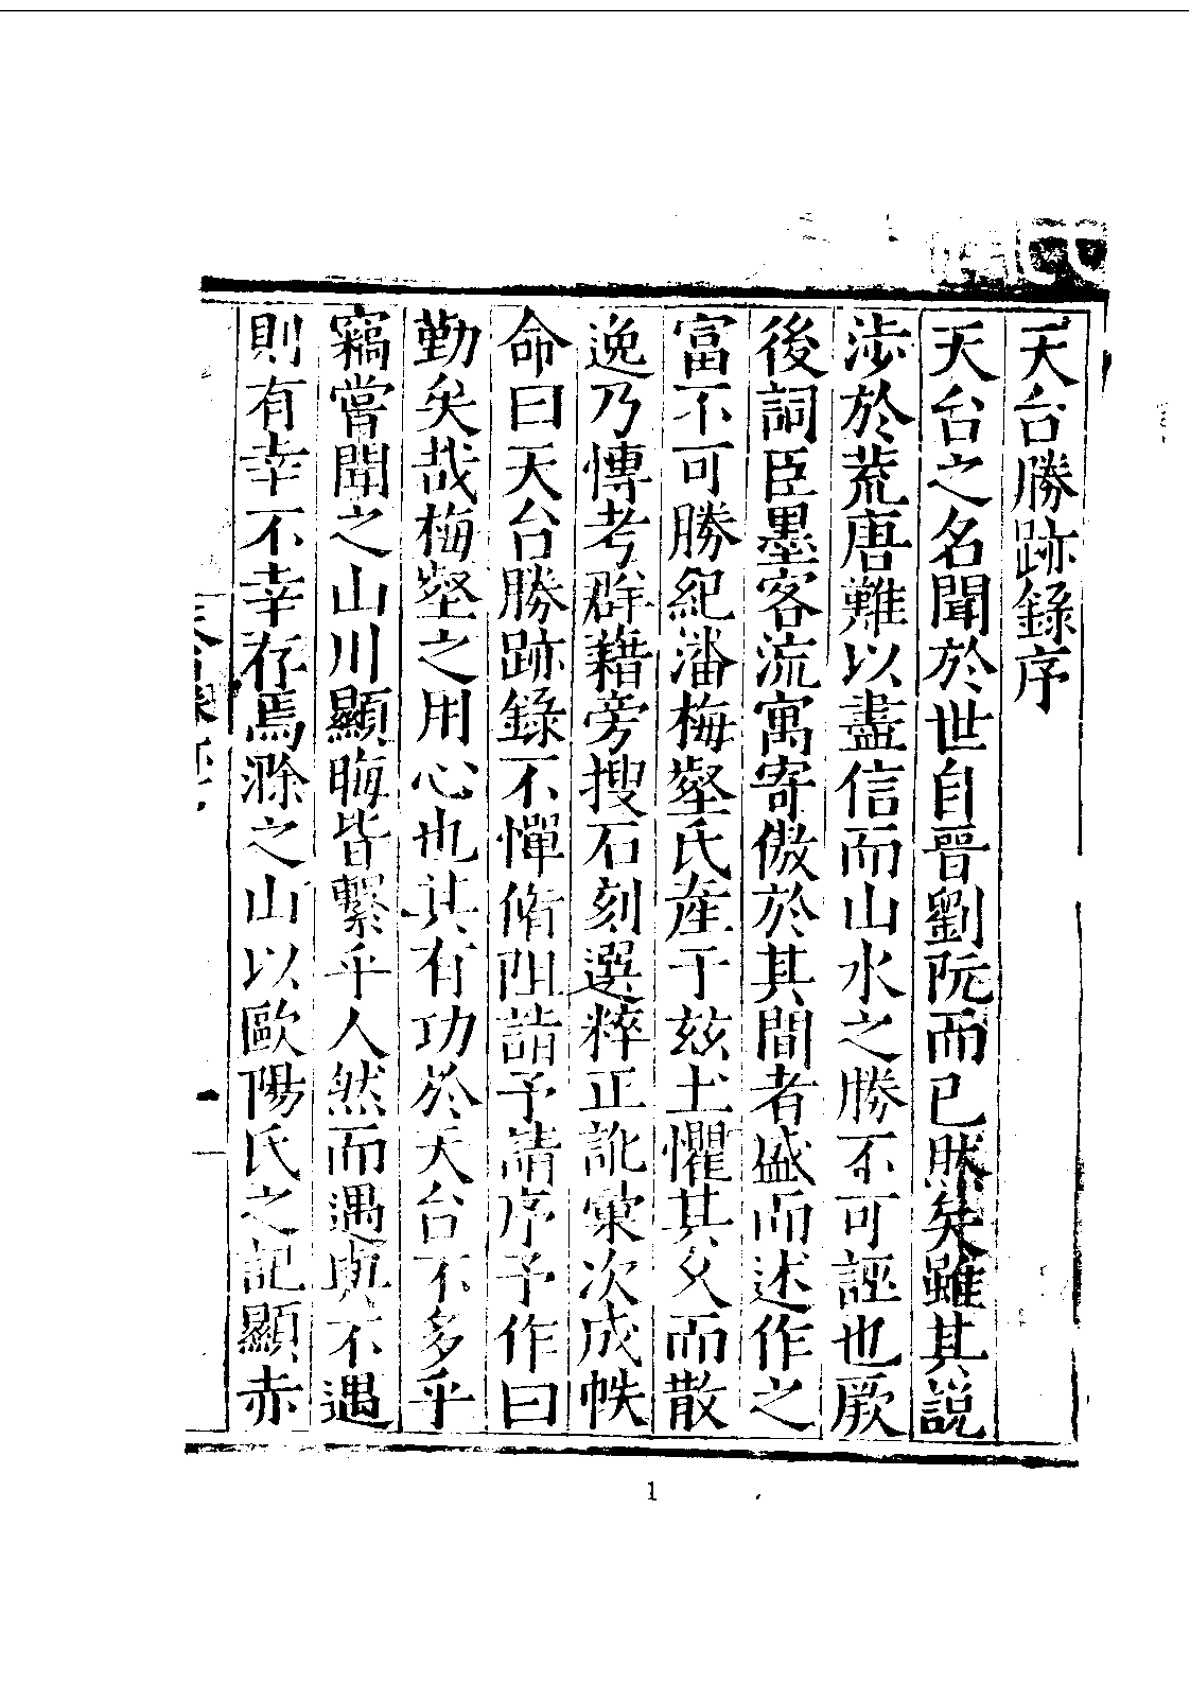 天台勝跡錄序
天台之名聞於世自晉劉阮而已然矣雖其說
渉於荒唐難以盡信而山水之勝不可誣也厥
後詞臣墨客流寓寄傲於其間者盛而述作之
富不可勝紀潘梅壑氏產于玆土懼其久而散
逸乃慱考群籍旁搜石刻選粹正訛彙次成帙
命曰天台勝跡錄不憚脩阻詣予請序予作曰
勤矣哉梅壑之用心也其有功於天台不多乎
竊嘗聞之山川顯晦皆繫乎人然而遇與不遇
則有幸不幸存焉滁之山以歐陽氏之記顯赤
1